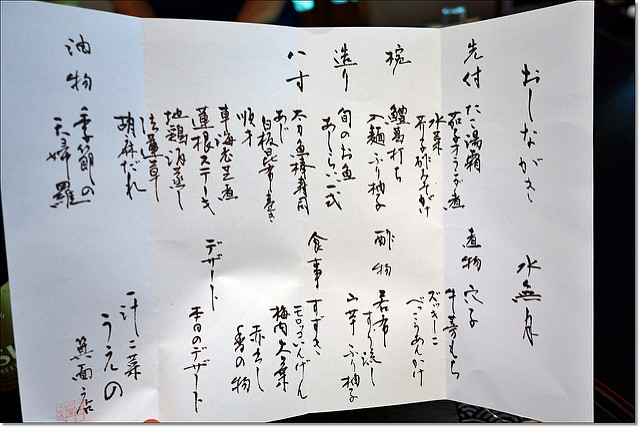 おしながき
水無月
先付 たこ湯霜
茄子オランダ煮
水菜
芥子酢みそがけ
椀 鱧葛打ち
入麺 ふり柚子
造り 旬のお魚
あしらい一式
八寸 太刀魚棒寿司
あじ
白板昆布巻き
順才
車海老芝煮
蓮根ステーキ
地鶏酒蒸し
法蓮草
胡麻だれ
油物 季節の
天婦羅
煮物 穴子
牛蒡もち
ズッキーニ
べっこうあんかけ
酢物 若布
すり流し
山芋 ふり柚子
食事 すずき
モロッコいんげん
梅肉 大葉
赤出し
香の物
デザート
本日のデザート
一汁二菜
うえの
箕面店